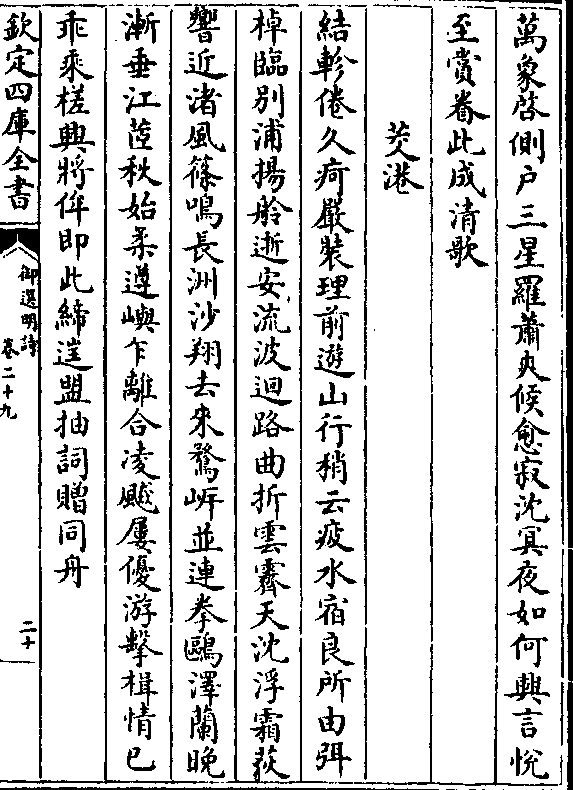 萬象啓側户三星羅蕭爽候愈寂沈冥夜如何興言悅
至賞眷此成清歌
茭港
結軫倦久疴嚴裝理前遊山行稍云疲水宿良所由弭
棹臨別浦揚舲逝安流波迴路曲折雲霽天沈浮霜荻
響近渚風篠鳴長洲沙翔去來鶩㟁並連拳鷗澤蘭晚
漸垂江蓲秋始柔遵嶼乍離合凌飈屢優游擊楫情已
乖乘槎興將侔即此締遥盟抽詞贈同舟
欽定四庫全書
御選明詩
卷二十九
二十